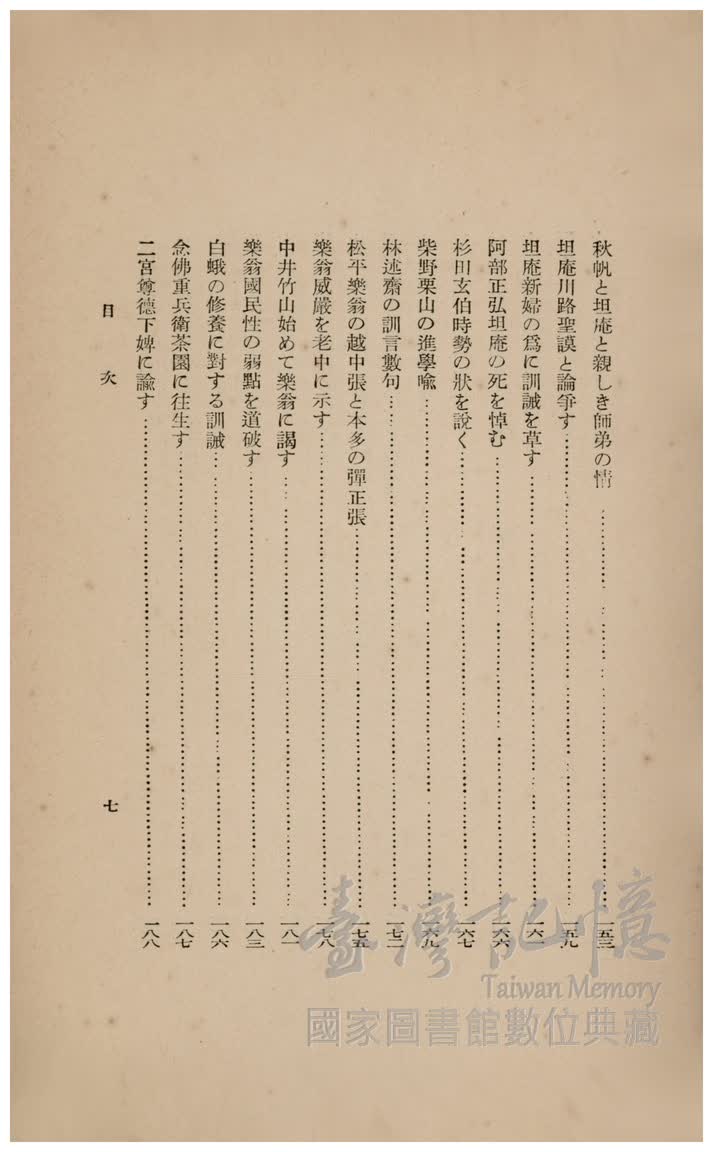 秋帆と坦庵と親しき師弟の情……………一五三
坦庵川路聖謨と論爭す……………一五九
坦庵新婦の爲に訓誡を草す……………一六一
阿部正弘坦庵の死を悼む……………一六六
杉田玄伯時勢の狀を說く……………一六七
柴野栗山の進學喩……………一六九
林述齋の訓言數句……………一七二
松平樂翁の越中張と本多の彈正張……………一七五
樂翁威嚴を老中に示す……………一七八
中井竹山始めて樂翁に謁す……………一八一
樂翁國民性の弱點を道破す……………一八三
白蛾の修養に對する訓誡……………一八六
念佛重兵衛茶園に往生す……………一八七
二宮尊德下婢に諭す……………一八八
目次
七
臺灣記憶
Taiwan Memory
國家圖書館數位典藏